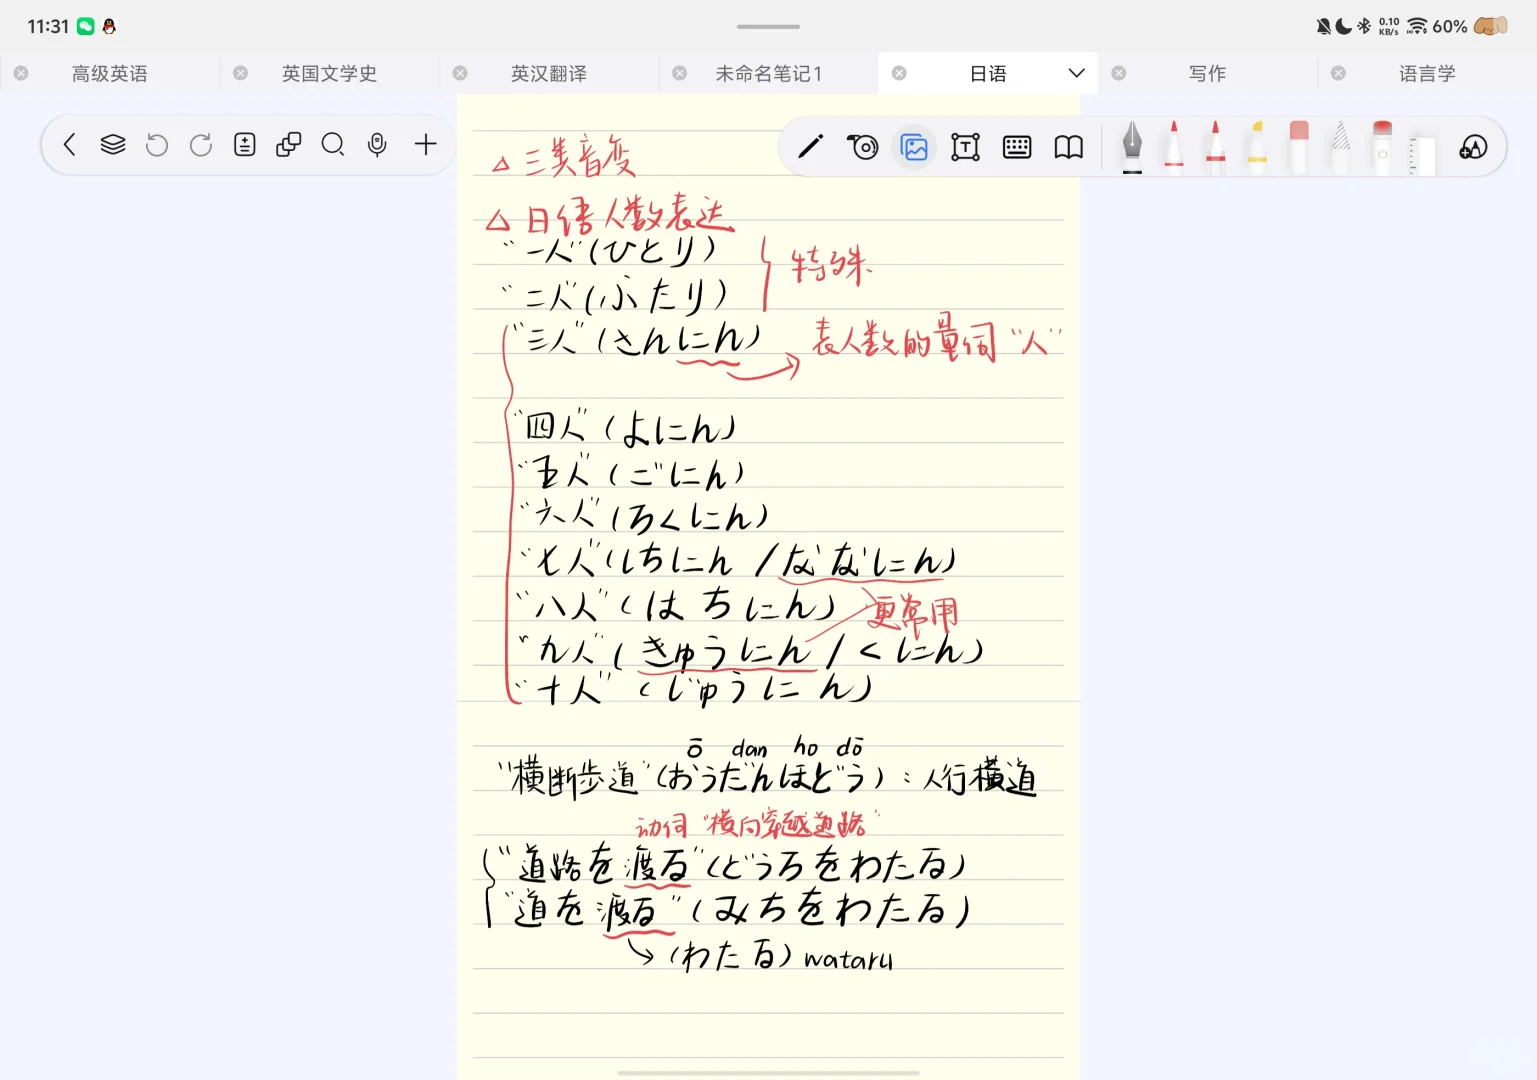 11:31
0.10 KB/s 60%
高级英语 英国文学史 英汉翻译 未命名笔记1 日语 写作 语言学
△ 三类音变
△ 日语人数表达
"一人"(ひとり)
"二人"(ふたり) 特殊
"三人"(さんにん) 表人数的量词"人"
"四人"(よにん)
"五人"(ごにん)
"六人"(ろくにん)
"七人"(しちにん/ななにん)
"八人"(はちにん) 更常用
"九人"(きゅうにん/くにん)
"十人"(じゅうにん)
ō dan ho dō
"横断步道"(おうだんほどう):人行横道
动词"横向穿越道路"
"道路を渡る"(どうろをわたる)
"道を渡る"(みちをわたる)
→(わたる)wataru